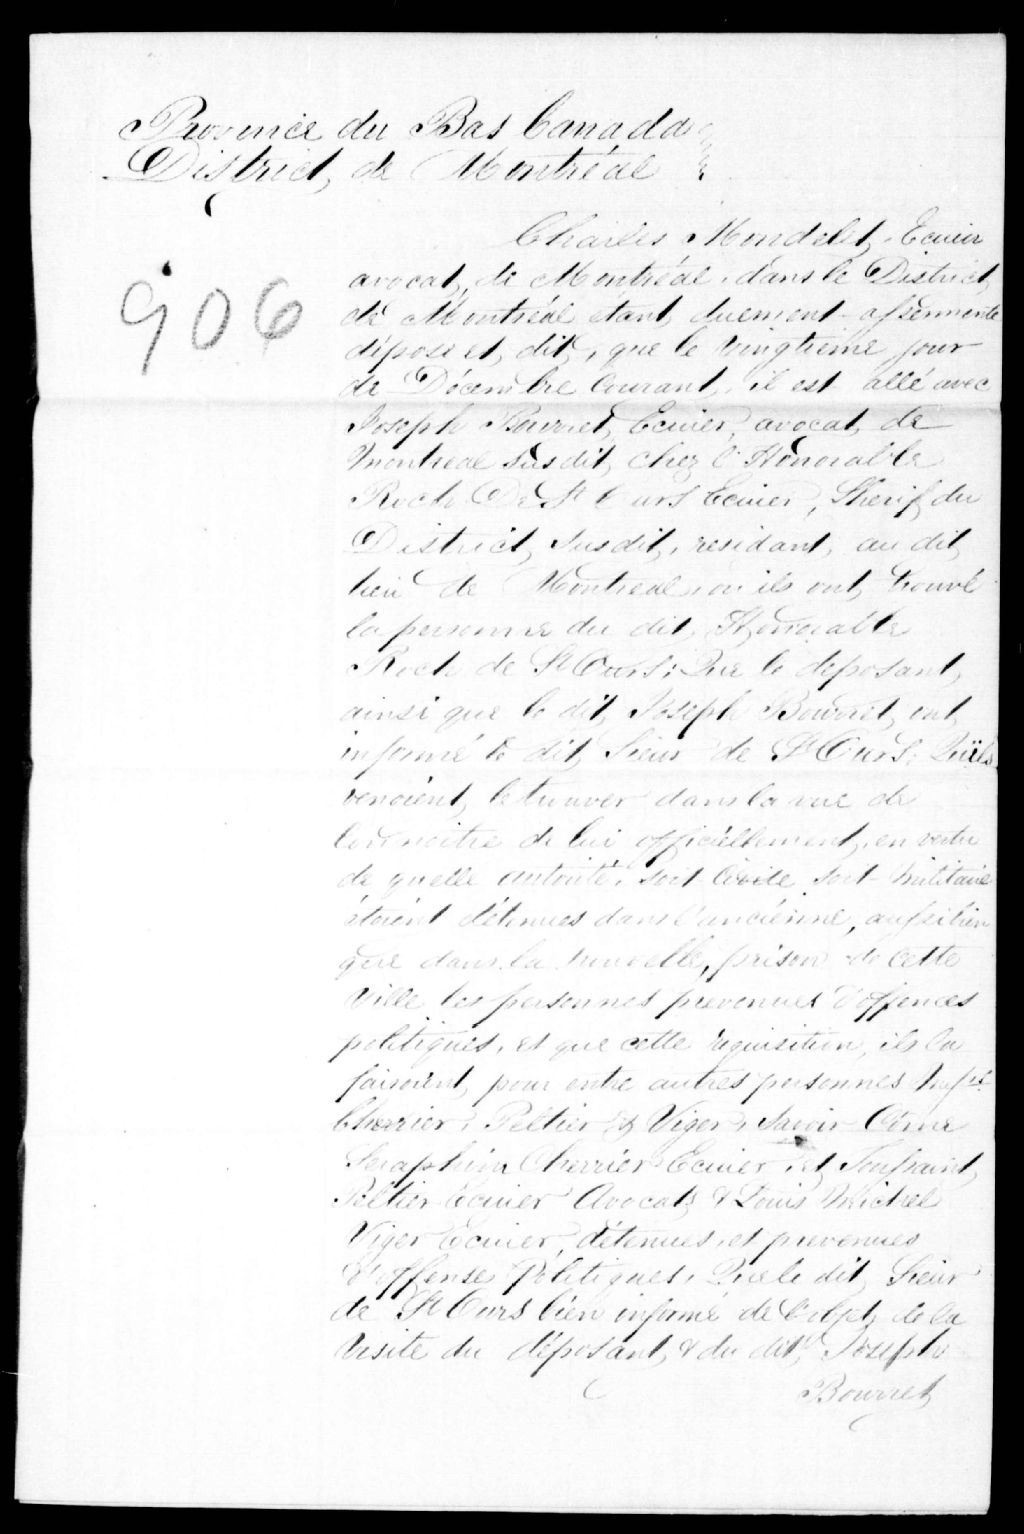 Province du Bas Canada
District de Montréal
Charles Mondelet, Ecuier
906
avocat, de Montréal, dans le District
de Montréal etant duement assermenté
dépose et dit, que le vingtieme jour
de Décembre Courant, il est allé avec
Joseph Bourret, Ecuier, avocat, de
Montreal susdit, chez l'Honorable
Roch De St Ours Ecuier, Sherif du
District, susdit, residant, au dit
lieu de Montreal, ou ils ont trouvé
la personne du dit, Honorable
Roch de St Ours; Que le déposant,
ainsi que le dit, Joseph Bourret, ont
informé le dit Sieur de St Ours, Qu'ils
venoient, le trouver dans la vue de
Connoitre de lui officiellement, en vertu
de quelle autorité, soit Civile soit Militaire
étoient détenues dans l'ancienne, aussi bien
que dans la nouvelle, prison de cette
Ville les personnes prevenues d'offences
politiques, et que cette requisition, ils la
faisoient, pour entre autres personnes Messrs
Cherrier, Peltier & Viger, savoir Côme
Seraphim Cherrier Ecuier, et, Toussaint,
Peltier Ecuier Avocats & Louis Michel
Viger Ecuier, détenues, et prevenues
d'offense Politiques, Que le dit, Sieur
de St Ours bien informé de l'objet, de la
Visite du déposant, & du dit, Joseph
Bourret